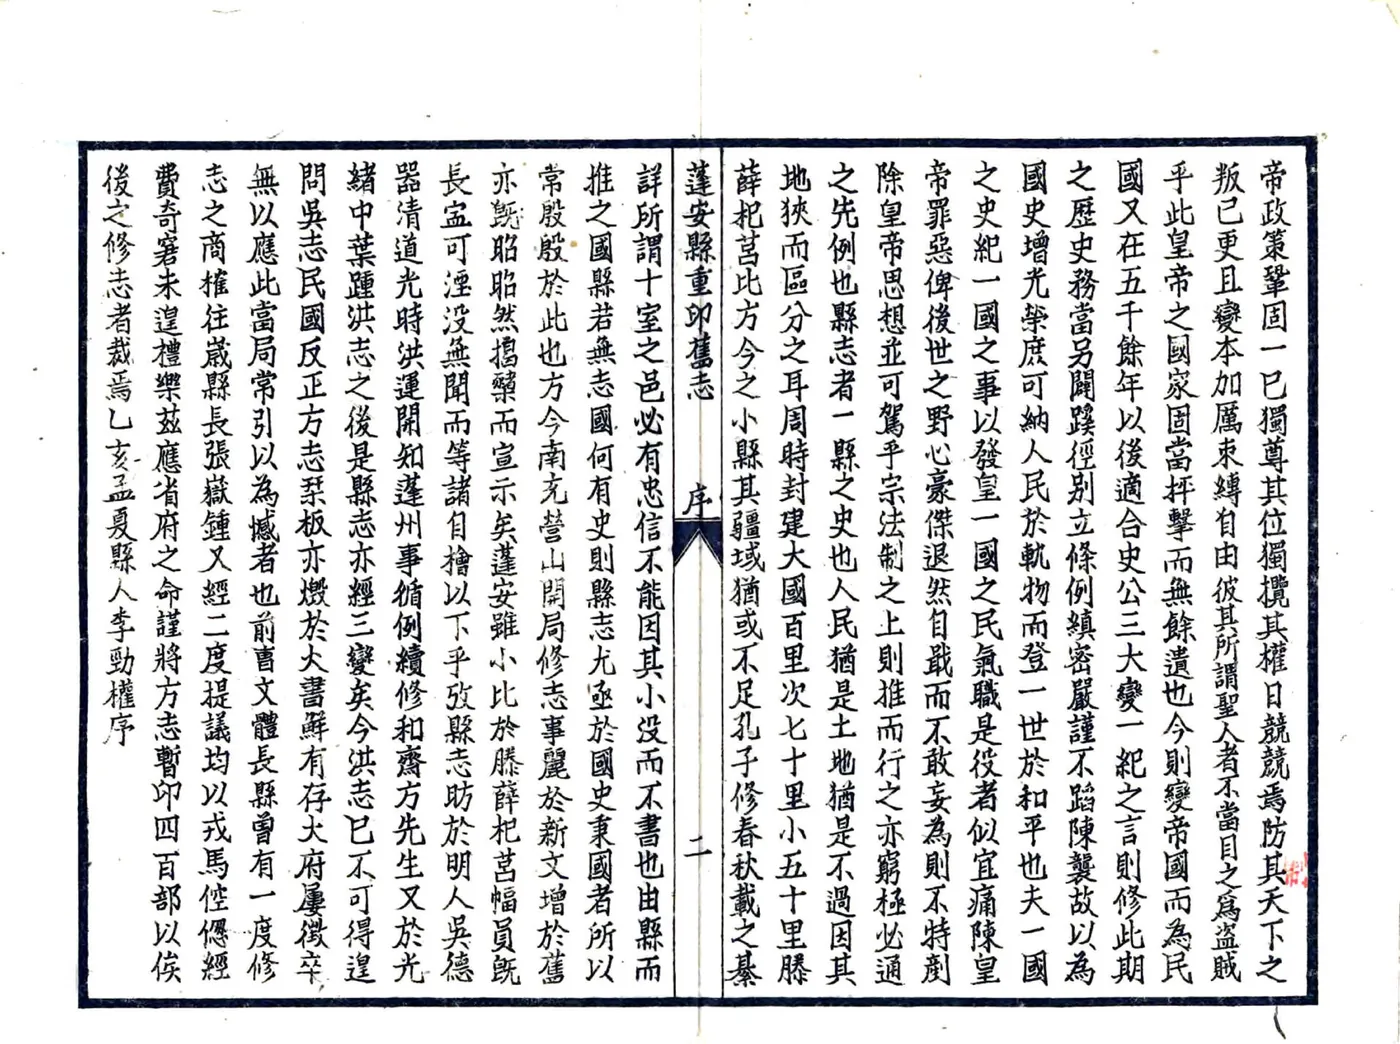 帝政策鞏固一已獨尊其位獨攬其權日競競焉防其天下之
叛已更且變本加厲束縛自由彼其所謂聖人者不當目之為盜賊
乎此皇帝之國家固當抨擊而無餘遺也今則變帝國而為民
國又在五千餘年以後適合史公三大變一紀之言則修此期
之歷史務當另闢蹊徑別立條例縝密嚴謹不蹈陳襲故以為
國史增光榮庶可納人民於軌物而登一世於和平也夫一國
之史紀一國之事以發皇一國之民氣職是役者似宜痛陳皇
帝罪惡俾後世之野心豪傑退然自戢而不敢妄為則不特剷
除皇帝思想並可駕乎宗法制之上則推而行之亦窮極必通
之先例也縣志者一縣之史也人民猶是土地猶是不過因其
地狹而區分之耳周時封建大國百里次七十里小五十里滕
薛杞莒比方今之小縣其疆域猶或不足孔子修春秋載之綦
蓬安縣重印舊志 序 二
詳所謂十室之邑必有忠信不能因其小没而不書也由縣而
推之國縣若無志國何有史則縣志尤亟於國史秉國者所以
常殷殷於此也方今南充營山開局修志事麗於新文增於舊
亦既昭昭然揭櫫而宣示矣蓬安雖小比於滕薛杞莒幅員既
長寍可湮没無聞而等諸自檜以下乎攷縣志昉於明人吳德
器清道光時洪運開知蓬州事循例續修和齋方先生又於光
緒中葉踵洪志之後是縣志亦經三變矣今洪志已不可得遑
問吳志民國反正方志棐板亦燬於火書鮮有存大府屢徵卒
無以應此當局常引以為憾者也前曹文體長縣曾有一度修
志之商榷往歲縣長張嶽鍾又經二度提議均以戎馬倥傯經
費奇窘未遑禮樂茲應省府之命謹將方志暫印四百部以俟
後之修志者裁焉乙亥孟夏縣人李勁權序